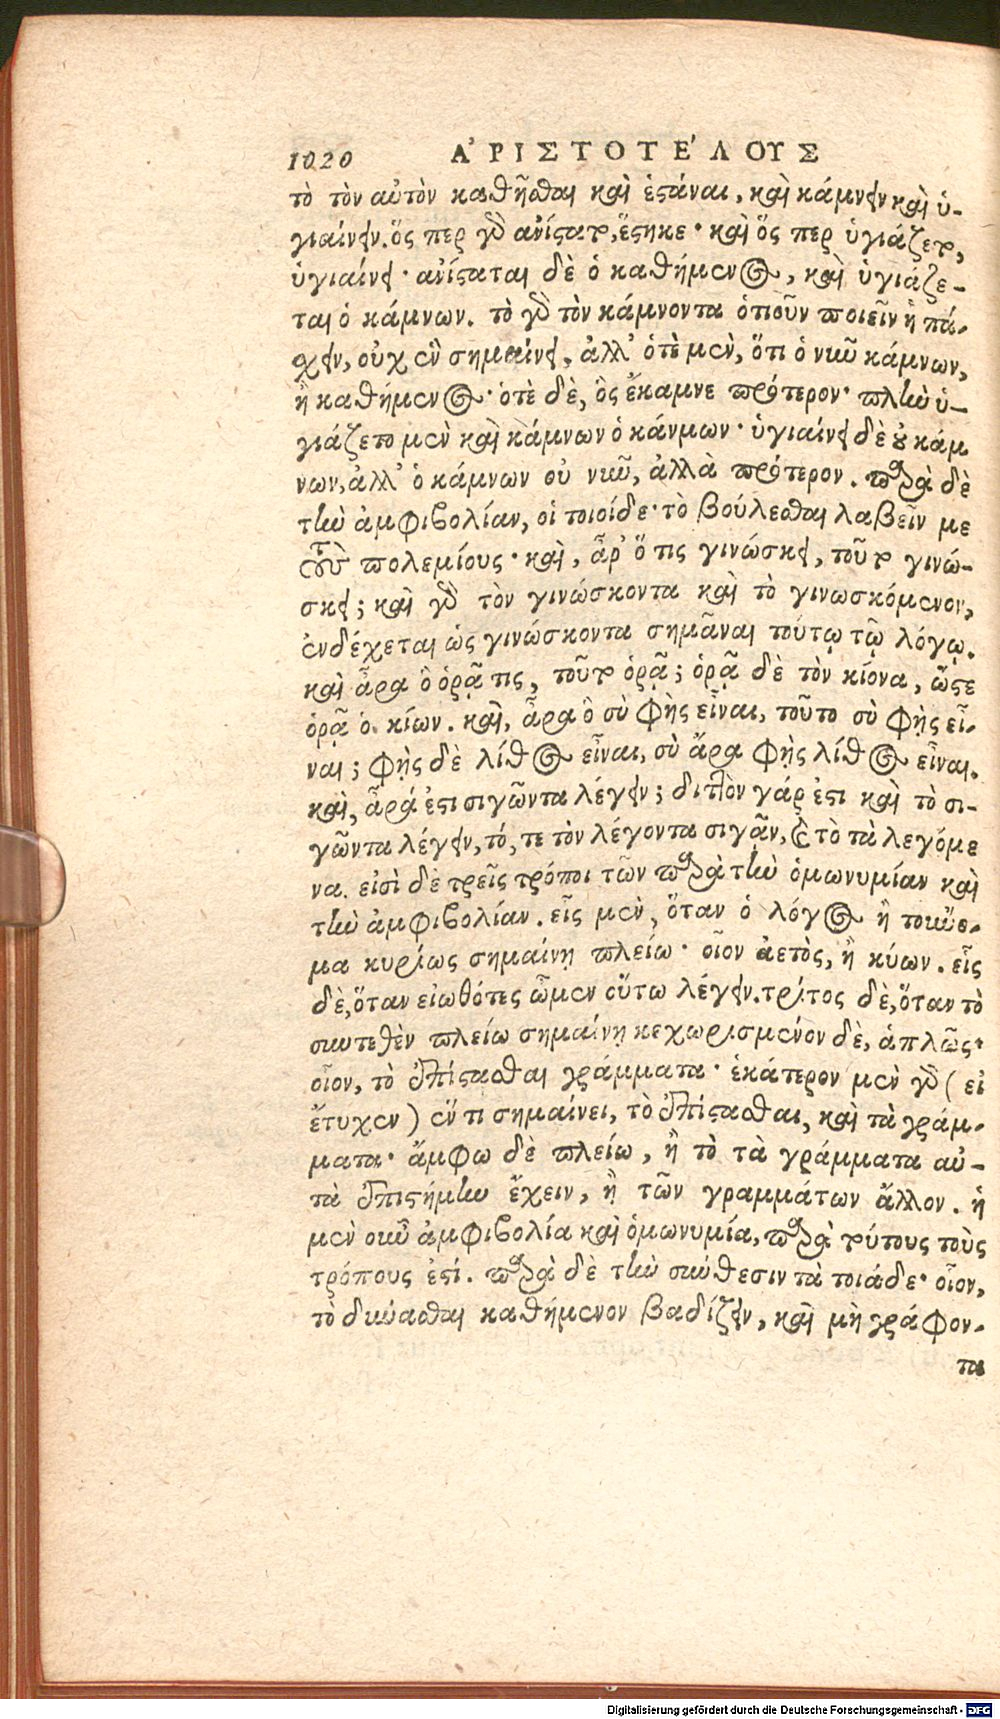 1020 ἈΡΙΣΤΟΤΕΛΟΥΣ
τὸ τὸν αὐτὸν καθῆσθαι καὶ ἑστάναι, καὶ κάμνειν καὶ ὑ-
γιαίνειν. ὅς περ γὰρ ἀνίσταται, ἕστηκε· καὶ ὅς περ ὑγιάζεται,
ὑγιαίνει· ἀνίσταται δὲ ὁ καθήμενος, καὶ ὑγιάζε-
ται ὁ κάμνων. τὸ γὰρ τὸν κάμνοντα ὁτιοῦν ποιεῖν ἢ πά-
σχειν, οὐχ ἓν σημαίνει, ἀλλ' ὁτὲ μὲν, ὅτι ὁ νῦν κάμνων,
ἢ καθήμενος· ὁτὲ δὲ, ὃς ἔκαμνε πρότερον· πλὴν ὑ-
γιάζετο μὲν καὶ κάμνων ὁ κάνμων· ὑγιαίνει δὲ οὐ κάμ
νων, ἀλλ' ὁ κάμνων οὐ νῦν, ἀλλὰ πρότερον. παρὰ δὲ
τὴν ἀμφιβολίαν, οἱ τοιοίδε· τὸ βούλεσθαι λαβεῖν με
τοὺς πολεμίους· καὶ, ἆρ' ὅ τις γινώσκει, τοῦτο γινώ-
σκει; καὶ γὰρ τὸν γινώσκοντα καὶ τὸ γινωσκόμενον,
ἐνδέχεται ὡς γινώσκοντα σημᾶναι τούτῳ τῷ λόγῳ.
καὶ ἆρα ὃ ὁρᾷ τις, τοῦτο ὁρᾷ; ὁρᾷ δὲ τὸν κίονα, ὥστε
ὁρᾷ ὁ κίων. καὶ, ἆρα ὃ σὺ φὴς εἶναι, τοῦτο σὺ φὴς εἶ-
ναι; φὴς δὲ λίθος εἶναι, σὺ ἄρα φὴς λίθος εἶναι.
καὶ, ἆρά ἐστι σιγῶντα λέγειν; διττὸν γάρ ἐστι καὶ τὸ σι-
γῶντα λέγειν, τό, τε τὸν λέγοντα σιγᾶν, καὶ τὸ τὰ λεγόμε
να. εἰσὶ δὲ τρεῖς τρόποι τῶν παρὰ τὴν ὁμωνυμίαν καὶ
τὴν ἀμφιβολίαν. εἷς μὲν, ὅταν ὁ λόγος ἢ τοὔνο-
μα κυρίως σημαίνῃ πλείω· οἷον ἀετὸς, ἢ κύων. εἷς
δὲ, ὅταν εἰωθότες ὦμεν οὕτω λέγειν. τρίτος δὲ, ὅταν τὸ
συντεθὲν πλείω σημαίνῃ κεχωρισμένον δὲ, ἁπλῶς·
οἷον, τὸ ἐπίστασθαι γράμματα· ἑκάτερον μὲν γὰρ (εἰ
ἔτυχεν) ἕν τι σημαίνει, τὸ ἐπίστασθαι, καὶ τὰ γράμ-
ματα· ἄμφω δὲ πλείω, ἢ τὸ τὰ γράμματα αὐ-
τὰ ἐπιστήμην ἔχειν, ἢ τῶν γραμμάτων ἄλλον. ἡ
μὲν οὖν ἀμφιβολία καὶ ὁμωνυμία, παρὰ τούτους τοὺς
τρόπους ἐστί. παρὰ δὲ τὴν σύνθεσιν τὰ τοιάδε· οἷον,
τὸ δύνασθαι καθήμενον βαδίζειν, καὶ μὴ γράφον-
τα
Digitalisierung gefördert durch die Deutsche Forschungsgemeinschaft - DFG